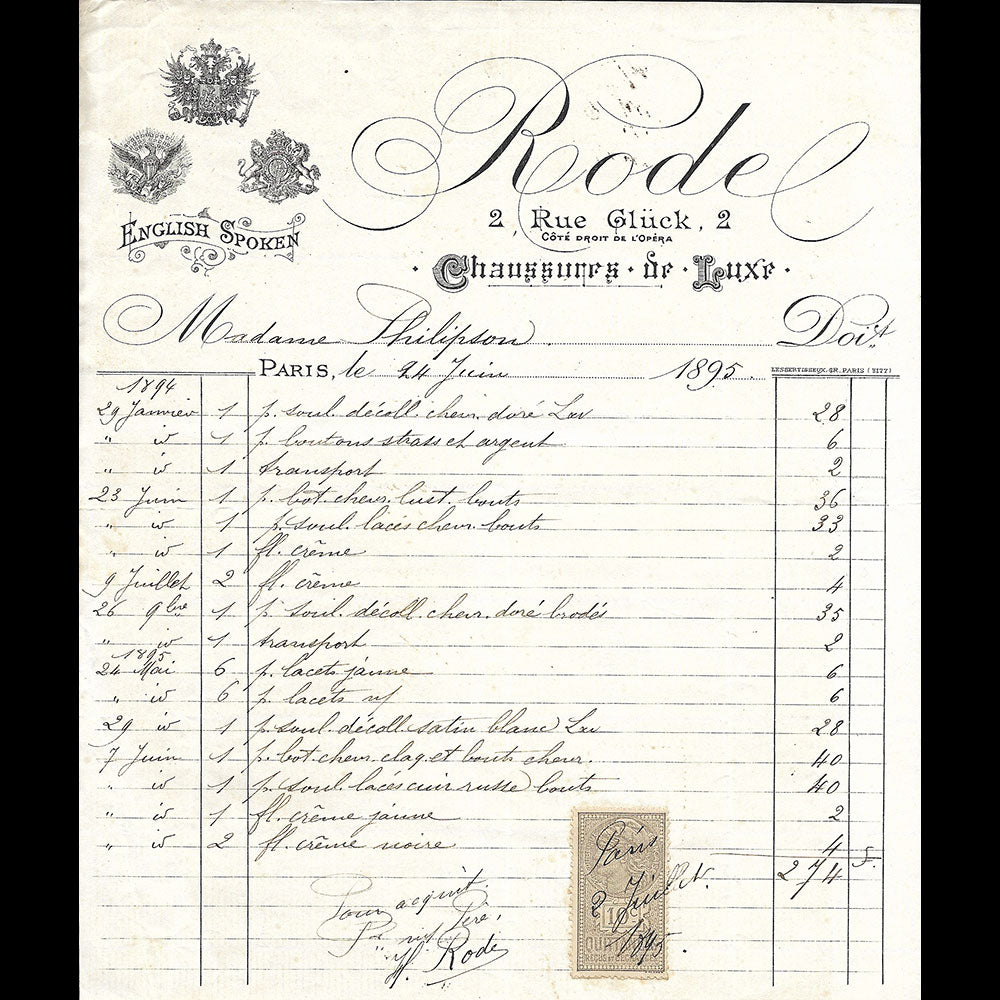 Rode
2, Rue Glück, 2
CÔTÉ DROIT DE L'OPÉRA
Chaussures · de · Luxe ·
ENGLISH SPOKEN
Madame Philipson Doit
PARIS, le 24 Juin 1895.
LESSERTISSEUX-GR. PARIS (3177)
1894
29 Janvier 1 p. soul. décoll. chev. doré Lxv 28
" id 1 p. boutons strass et argent 6
" id 1 transport 2
23 Juin 1 p. bot. chev. lust. bouts 36
" id 1 p. soul. lacés chev. bouts 33
" id 1 fl. crême 2
9 Juillet 2 fl. crême 4
26 9bre 1 p. soul. décoll. chev. doré brodés 35
" id 1 transport 2
1895
24 Mai 6 p. lacets jaune 6
" id 6 p. lacets 6
29 id 1 p. soul. décoll. satin blanc Lxv 28
7 Juin 1 p. bot. chev. claq. et bouts chev. 40
" id 1 p. soul. lacés cuir russe bouts 40
" id 1 fl. crême jaune 2
" id 2 fl. crême noire 4
274 F.
Pour acquit.
Père,
Rode
Paris
2 Juillet.
1895.
10c
QUITTANCES